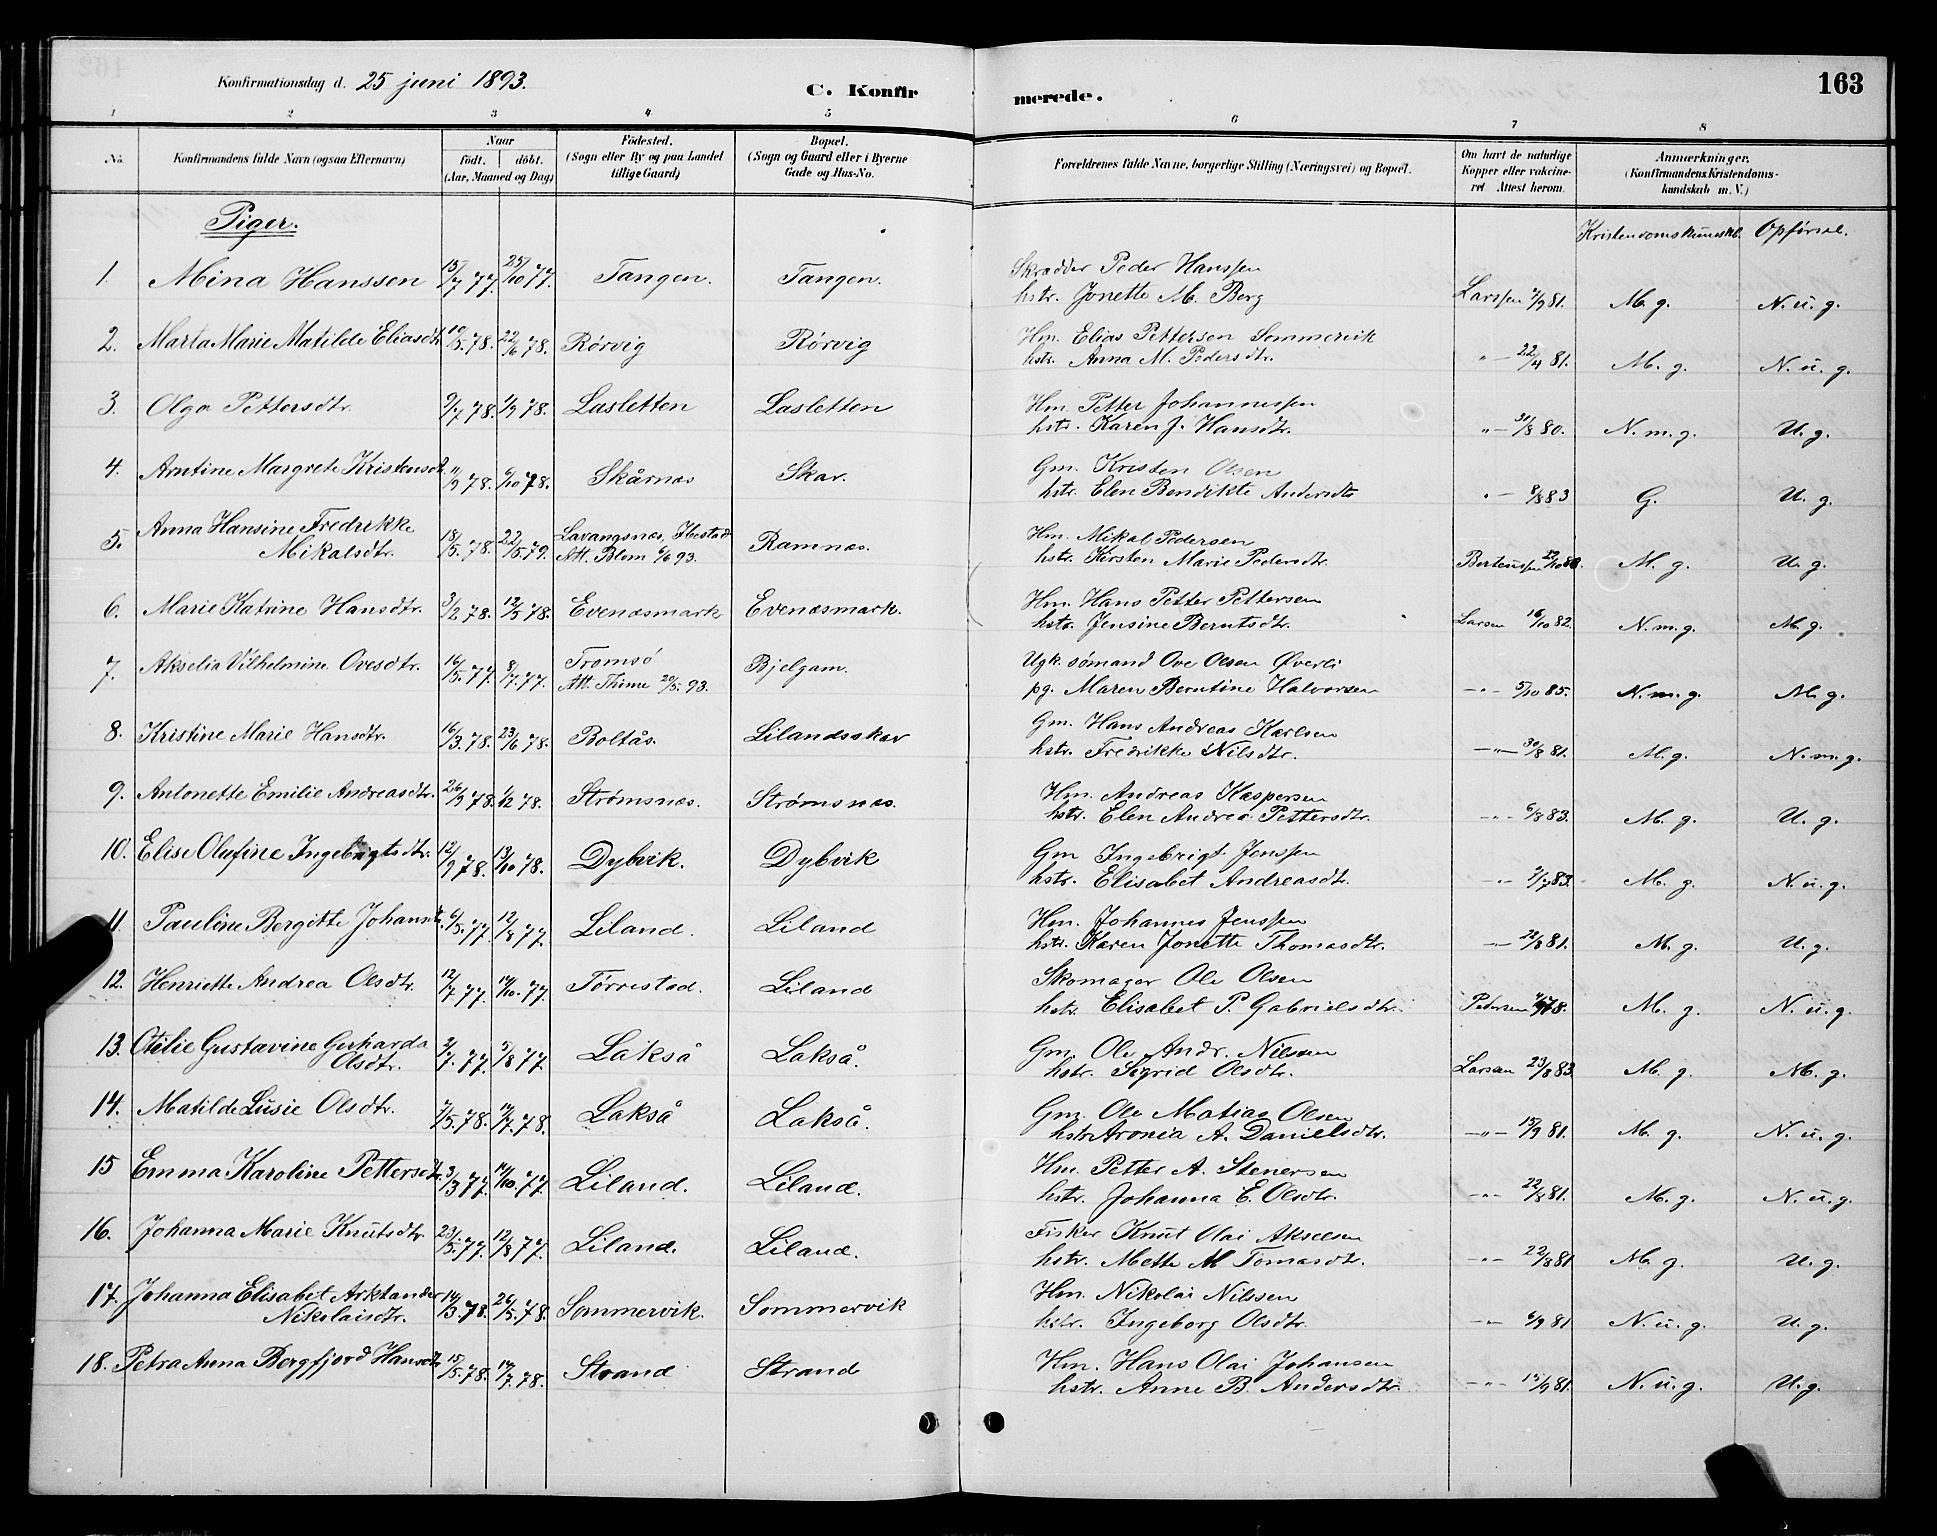 Konfirmationsdag d. 25 juni 1893. C. Konfirmerede. 163
1 2 3 4 5 6 7 8
No. Konfirmandens fulde Navn (ogsaa Efternavn) Naar födt. döbt. (Aar, Maaned og Dag) Födested. (Sogn eller By og paa Landet tillige Gaard) Bopæl. (Sogn og Gaard eller i Byerne Gade og Hus-No. Forældrenes fulde Navne, borgerlige Stilling (Næringsvei) og Bopæl. Om havt de naturlige Kopper eller vakcineret. Attest herom. Anmærkninger. (Konfirmandens Kristendomskundskab m. V.)
Piger. Kristendomskundsk. Opførsel.
1. Mina Hanssen 15/7 77. 23/10 77. Tangen. Tangen. Skrædder Peder Hanssen
hstr. Jonette M. Berg Larssen 2/9 81. M. g. N. u. g.
2. Marta Marie Matilde Eliasdtr. 10/5 78. 22/6 78. Rørvig Rørvig Hm. Elias Pettersen Sommervik
hstr. Anna M. Pedersdtr. " 22/4 81. M. g. N. u. g.
3. Olga Pettersdtr. 9/7 78. 1/9 78. Lasletten Lasletten Hm. Petter Johannessen
hstr. Karen J. Hansdtr. " 31/8 80. N. m. g. U. g.
4. Arntine Margrete Kristensdt. 11/9 78. 6/10 78. Skårnæs Skar. Gm. Kristen Olsen
hstr. Elen Bendikte Andersdtr " 8/8 83 G. U. g.
5. Anna Hansine Fredrikke Mikalsdtr. 18/5. 78. 22/5. 79. Lavangsnæs, Ibestad Att. Blom 6/6 93. Ramnæs. Hm. Mikal Pedersen
hstr. Kirsten Marie Pedersdtr. Berteussen 22/10 80. M. g. U. g.
6. Marie Katrine Hansdtr. 3/2 78. 12/5 78. Evenæsmark Evenæsmark. Hm. Hans Petter Pettersen
hstr. Jensine Berntsdtr. Larsen 16/10 82. N. m. g. M. g.
7. Akselia Vilhelmine Ovesdtr. 16/5. 77. 8/7. 77. Tromsø Att. Thime 20/5. 93. Bjelgam. Ugk. sömand Ove Olsen Øverli
pg. Maren Berntine Halvorsen " 5/10 85. N. m. g. M. g.
8. Kristine Marie Hansdtr. 16/3. 78. 23/6 78. Boltås. Lilandsskar Gm. Hans Andreas Karlsen
hstr. Fredrikke Nilsdtr. " 30/8 81. M. g. N. m. g.
9. Antonette Emilie Andreasdtr. 26/9 78. 1/12 78. Strømsnæs. Strømsnæs. Hm. Andreas Kaspersen
hstr. Elen Andrea Pettersdtr. " 6/8 83. M. g. U. g.
10. Elise Olufine Ingebrigtsdtr. 12/9 78. 13/10 78. Dybvik. Dybvik Gm Ingebrigt Jenssen
hstr. Elisabet Andreasdtr. " 2/7 83. M. g. N. u. g.
11. Pauline Bergitte Johansdtr. 6/5. 77. 12/8 77. Liland. Liland Hm. Johannes Jenssen
hstr. Karen Jonette Thomasdtr. " 22/8 81. M. g. U. g.
12. Henriette Andrea Olsdtr. 12/7 77. 14/10. 77. Tørrestad. Liland Skomager Ole Olsen
hstr. Elisabet P. Gabrielsdtr. Petersen 78. M. g. N. u. g.
13. Otilie Gustavine Gerharda Olsdtr. 2/7. 77. 5/8 77. Lakså Lakså. Gm. Ole Andr. Nilssen
hstr. Sigrid Olsdtr. Larsen 23/8 83. M. g. M. g.
14. Matilde Lusie Olsdtr. 7/5. 78. 14/7. 78. Lakså Lakså. Gm. Ole Matias Olsen
hstr. Aronia A. Danielsdtr. " 15/9 81. M. g. N. u. g.
15 Emma Karoline Pettersdtr. 3/3 77. 14/10. 77. Liland. Liland. Hm. Petter A. Stenersen
hstr. Johanna E. Olsdtr. " 22/8 81. M. g. N. u. g.
16. Johanna Marie Knutsdtr. 23/5. 77. 12/8 77. Liland. Liland. Fisker Knut Olai Akselsen
hstr. Mette M Tomasdtr. " 22/8 81 M. g. U. g.
17. Johanna Elisabet Arktander Nikolaisdtr. 14/3. 78. 26/5. 78. Sommervik. Sommervik Hm. Nikolai Nilssen
hstr. Ingeborg Olsdtr. " 6/9 81 N. u. g. U. g.
18. Petra Anna Bergfjord Hansdtr. 15/5. 78. 14/7. 78. Strand Strand Hm. Hans Olai Johansen
hstr. Anne B. Andersdtr. " 15/9 81. N. u. g. U. g.